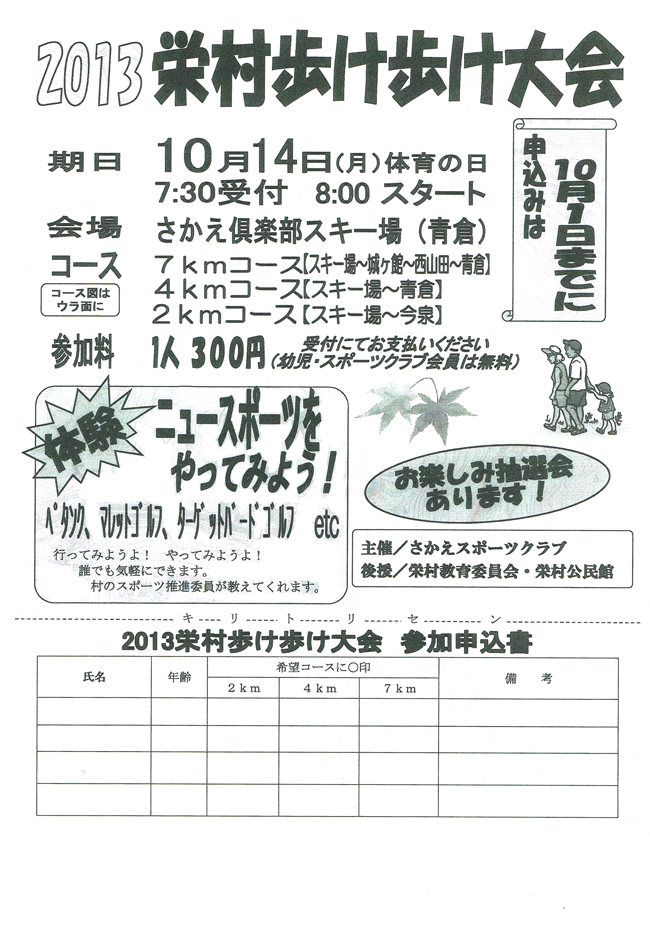 2013 栄村歩け歩け大会
期日 10月14日(月)体育の日
7:30受付 8:00 スタート
申込みは
10月1日までに
会場 さかえ倶楽部スキー場（青倉）
コース 7kmコース【スキー場～城ヶ館～西山田～青倉】
コース図は
ウラ面に
4kmコース【スキー場～青倉】
2kmコース【スキー場～今泉】
参加料 1人 300円 受付にてお支払いください
（幼児・スポーツクラブ会員は無料）
体験
ニュースポーツを
やってみよう！
ペタンク、マレットゴルフ、ターゲットバードゴルフ etc
行ってみようよ！ やってみようよ！
誰でも気軽にできます。
村のスポーツ推進委員が教えてくれます。
お楽しみ抽選会
あります！
主催／さかえスポーツクラブ
後援／栄村教育委員会・栄村公民館
キ リ ト リ セ ン
2013栄村歩け歩け大会 参加申込書
氏名 年齢 希望コースに〇印 備 考
2km 4km 7km